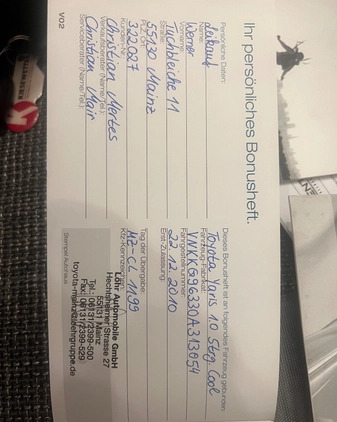 Ihr persönliches Bonusheft.
Persönliche Daten:
Name:
Vorname:
Werner
Straße:
Tuchbleiche 11
PLZ, Ort:
55130 Mainz
Kunden-Nr.:
322027
Verkaufsberater (Name/Tel.):
Christian Mertes
Serviceberater (Name/Tel.):
Christian Mair
V02
Dieses Bonusheft ist an folgendes Fahrzeug gebunden:
Fahrzeug-Fabrikat:
Toyota Yaris 1.0 5trg. Cool
Fahrgestellnummer:
VNKKG96330A313054
Erst-Zulassung:
22.12.2010
Tag der Übergabe:
Kfz-Kennzeichen:
MZ-CL 1199
Löhr Automobile GmbH
Hechtsheimer Strasse 27
55131 Mainz
Tel.: 06131/2399-500
Fax: 06131/2399-529
Stempel Autohaus